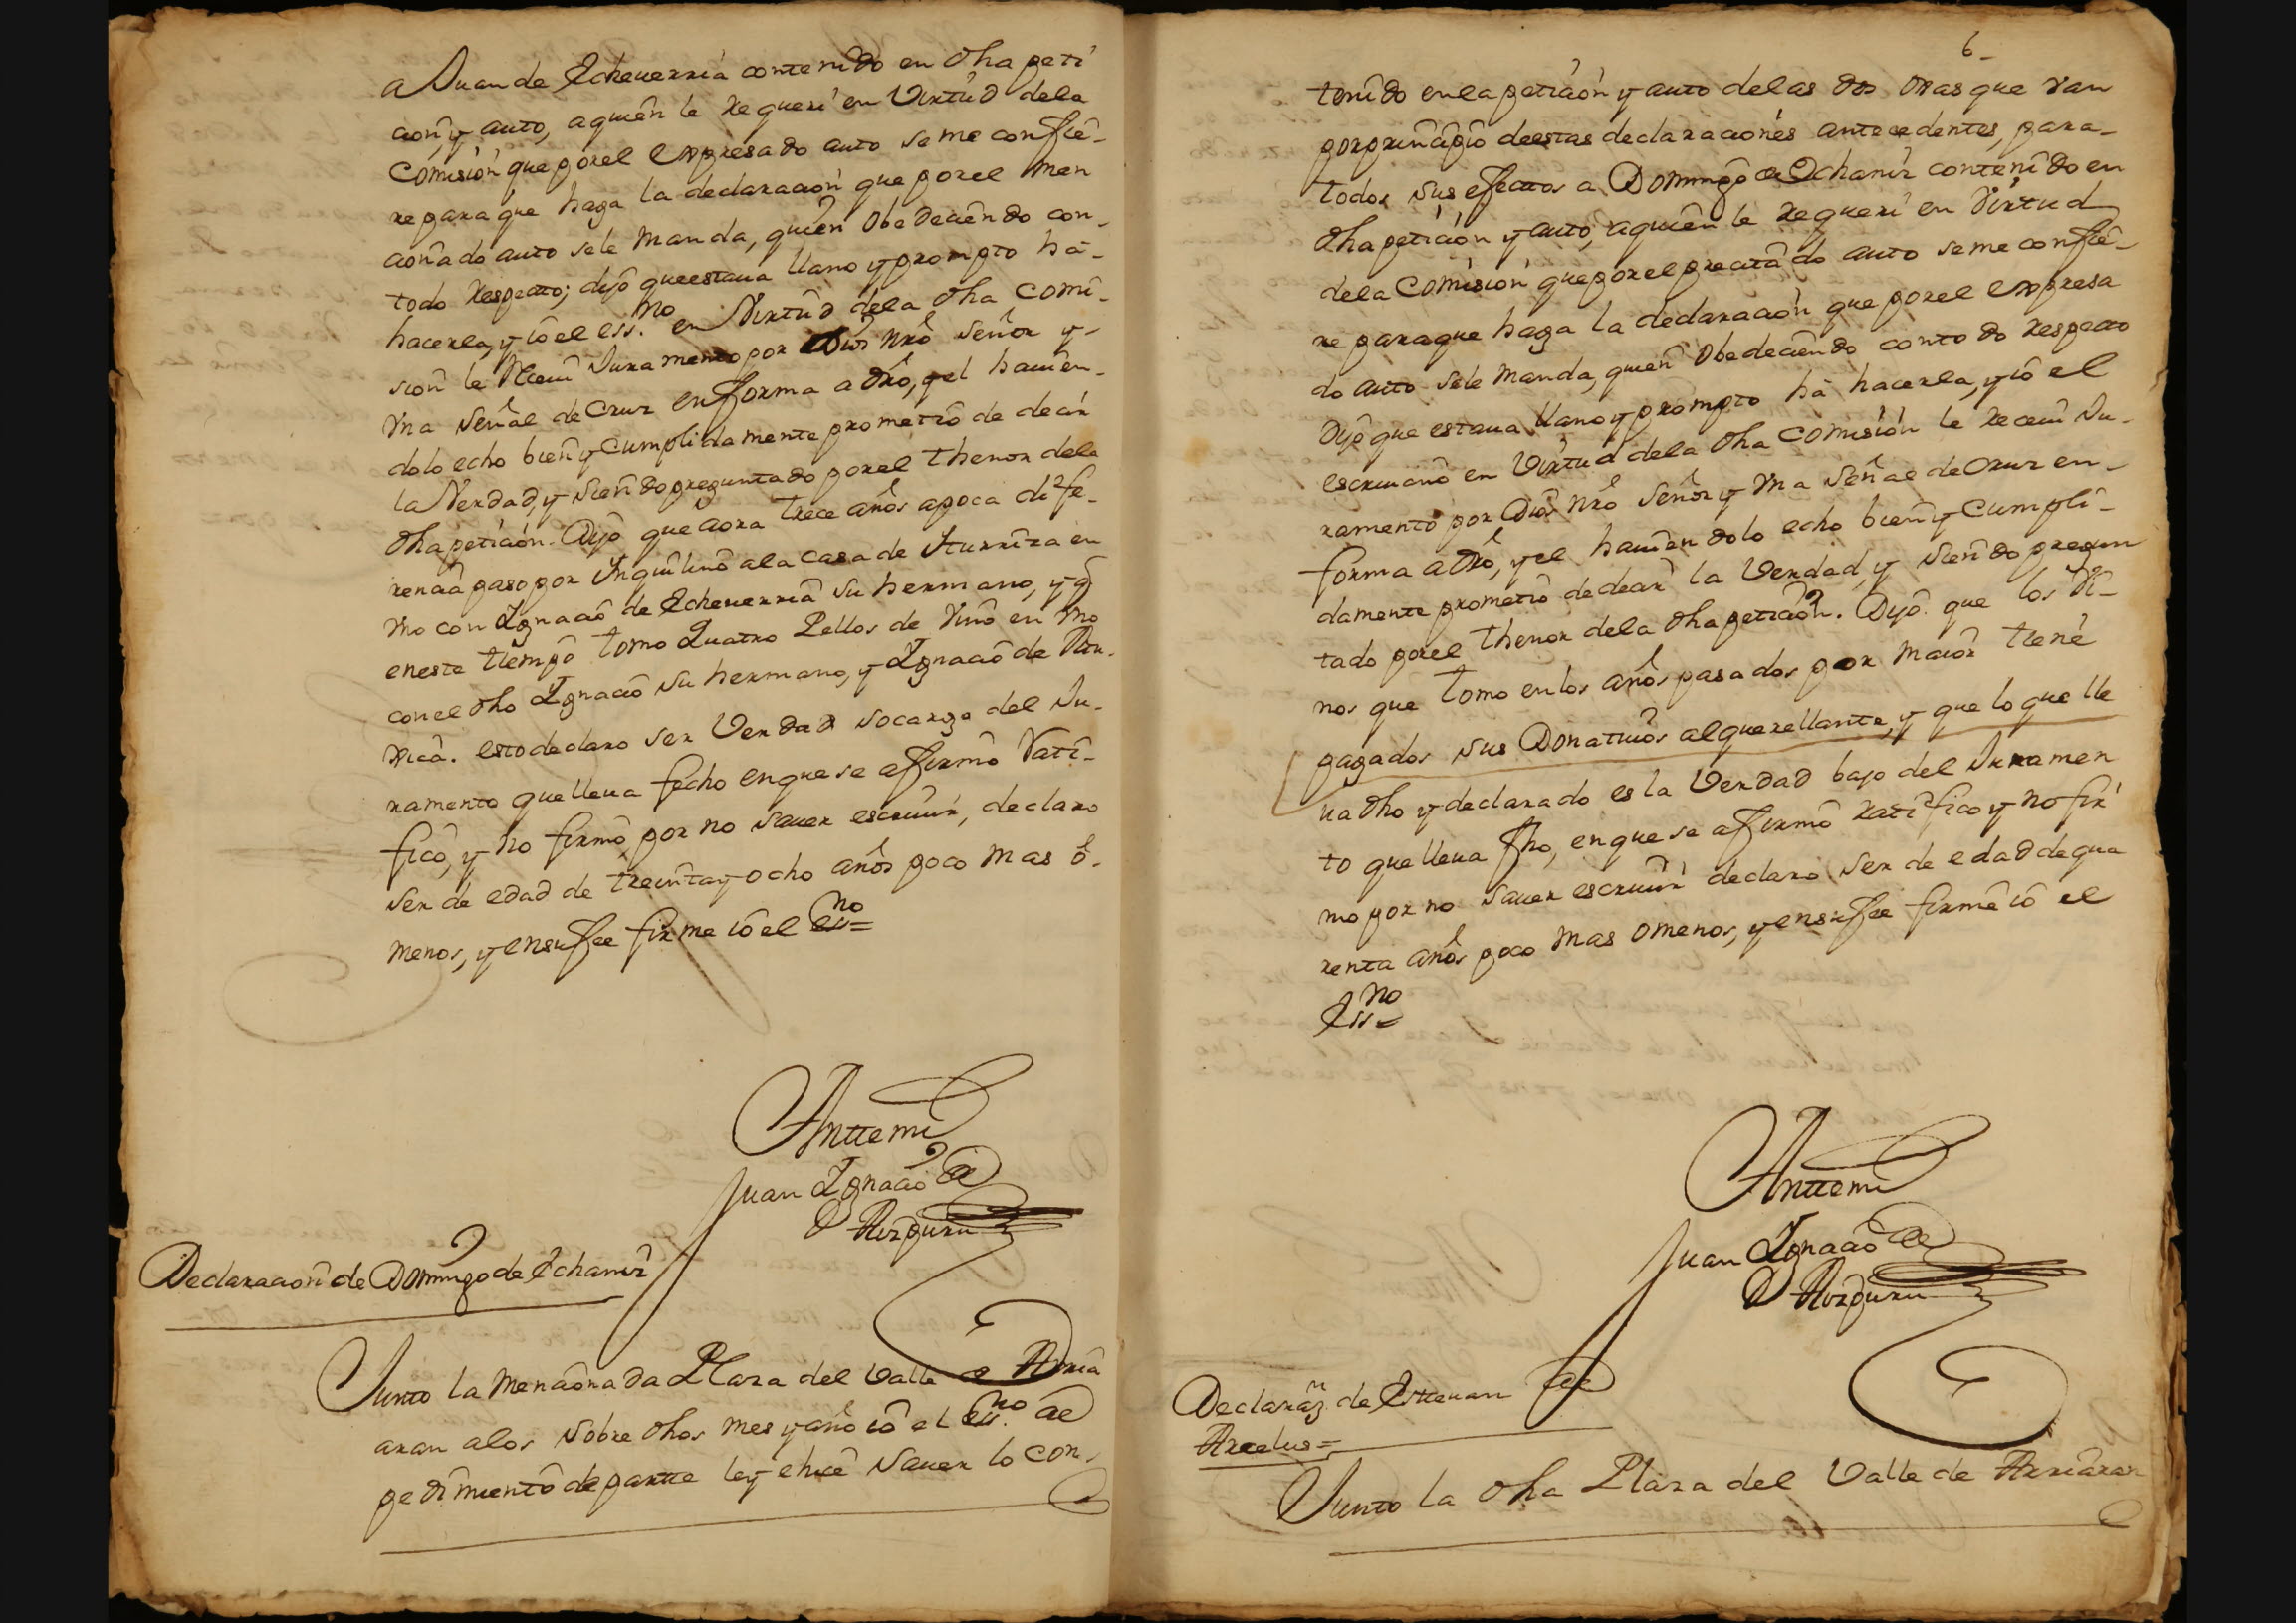 a Juan de Echeuerria contenido en dha peti
cion, y auto, a quien le requeri en Virtud dela
Comision que por el expresado auto se me confie-
re para que haga la declaracion que por el men
cionado auto sele manda, quien obedeciendo con-
todo Respecto; dijo que estaua llano y prompto hà-
hacerla, y iò el ess.no en Virtud dela dha Comi-
sion le Receui Juramento por Dios nrô Señor y-
vna Señal de Cruz en forma a drô, y el hauien-
dolo echo bien y Cumplidamente prometio de decir
la Verdad, y siendo preguntado por el thenor dela
dha peticion. Dijo que aora trece años apoca dife-
rencia paso por Inquilino ala Casa de Iturriza en
vno con Ignacio de Echeuerria su hermano, y q̃
en este tiempo tomo Quatro Pellos de Vino en vno
con el dho Ignacio su hermano, y Ignacio de Itu-
rrica. esto declaro ser Verdad socargo del Ju-
ramento que lleua fecho en que se afirmô Rati-
ficô, y no firmô por no sauer escriuir, declaro
ser de edad de treinta y ocho años poco mas ô-
menos, y en su fee firme iò el ess.no=
Anttemi
Juan Ignacio de
Aizpuru
Declaracion de Domingo de Echaniz
Junto la Mencionada Plaza del Valle de Arria
aran alos sobre dhos mes y año iò el ess.no de
pedimiento de partte ley e hice sauer lo con-
6-
tenido en la peticion y auto delas dos ojas que van
por principio de estas declaraciones antecedentes, para-
todos sus efectos a Domingo de Echaniz contenido en
dha peticion y auto, a quien le requeri en Virtud
dela Comision que por el precitado auto se me confie-
re para que haga la declaracion que por el expresa
do auto sele manda, quien obedeciendo con todo respecto
Dijo que estaua llano y prompto hà hacerla, y iò el
escriuano en Virtud dela dha Comision le receui Ju-
ramento por Dios nrô Señor y vna Señal de Cruz en-
forma a drô, y el hauiendolo echo bien y Cumpli-
damente prometio de decir la Verdad, y siendo pregun
tado por el thenor dela dha peticion. Dijo que los Vi-
nos que tomo en los años pasados por maior tiene
pagados sus Donatiuos al querellante, y que lo que lle
ua dho y declarado es la Verdad bajo del Juramen
to que lleua fho, en que se afirmô ratifico y no fir
mo por no sauer escriuir declaro ser de edad de qua
renta años poco mas omenos, y en su fee firme iò el
Ess.no=
Anttemi
Juan Ignacio de
Aizpuru
Declaraz.n de Estteuan de
Arcelus=
Junto la dha Plaza del Valle de Arriaran